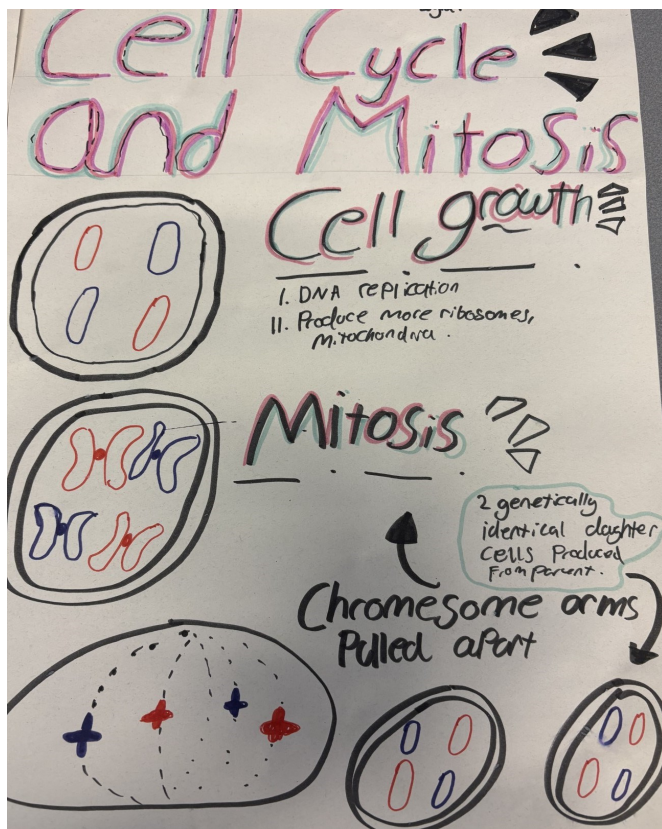 Cell Cycle
and Mitosis
Cell growth
I. DNA replication
II. Produce more ribosomes,
Mitochondria.
Mitosis
2 genetically
identical daghter
cells Produced
From parent.
Chromesome arms
Pulled apart